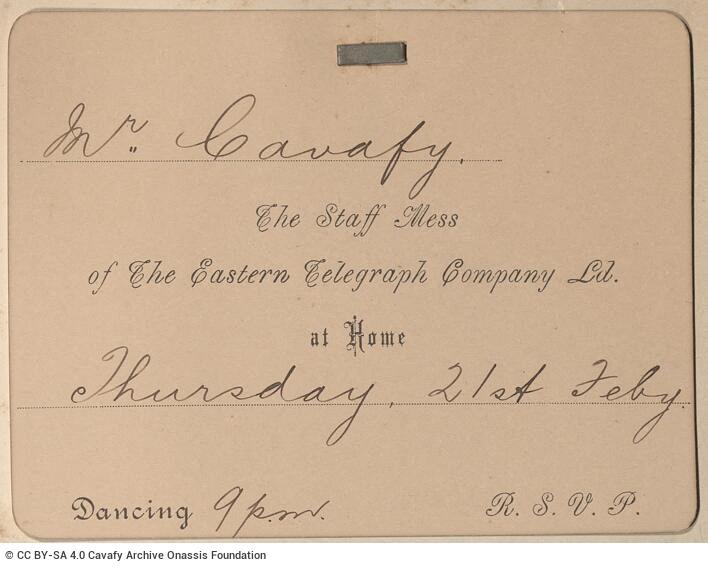 Mr. Cavafy.
The Staff Mess
of The Eastern Telegraph Company Ld.
at Home
Thursday, 21st Feby.
Dancing 9 p.m. R. S. V. P.
© CC BY-SA 4.0 Cavafy Archive Onassis Foundation